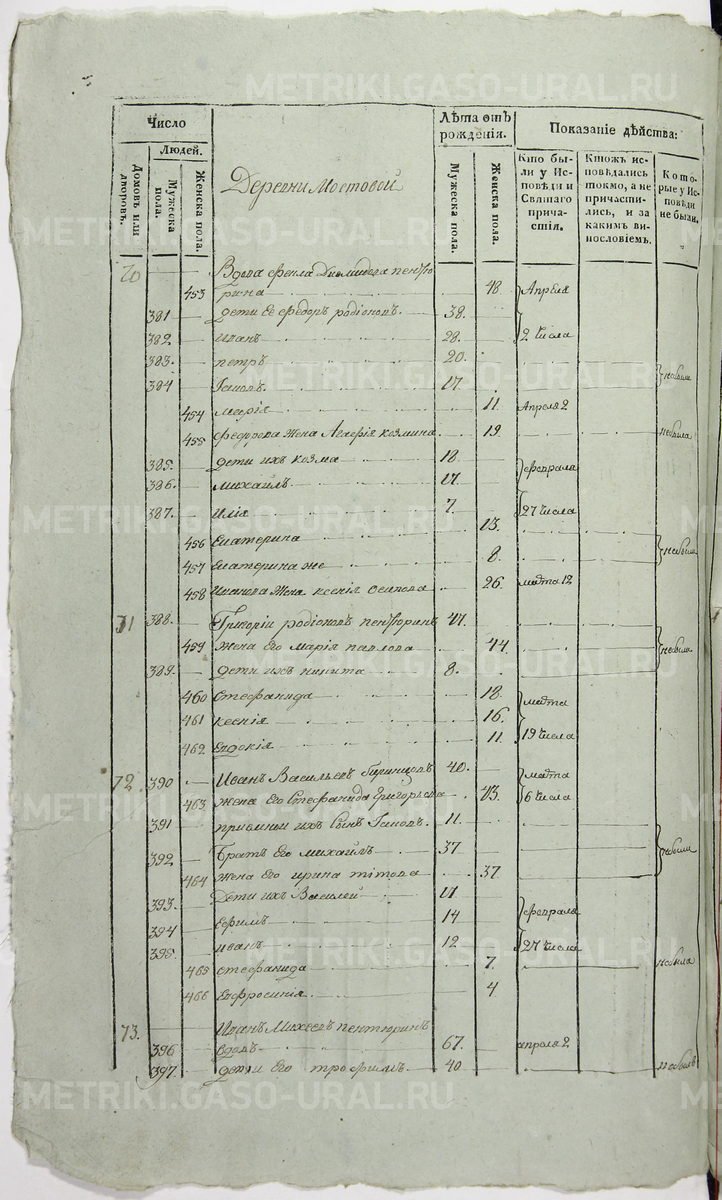 METRIKI.GASO-URAL.RU
Число
Людей.
Домовъ или дворовъ.
Мужеска пола.
Женска пола.
Деревни Мостовой
Лѣта отъ рожденія.
Мужеска пола.
Женска пола.
Показаніе дѣйства:
Кто были у Исповѣди и Святаго причастія.
Ктожъ исповѣдались токмо, а не причастились, и за какимъ винословіемъ.
Которые у Исповѣди не были.
70 Вдова Диомидова пентю
453 рина 48. Апреля
381 дети Ее Федоръ родіоновъ 38.
382 иванъ 28. 2 числа
383. петръ 20.
384 17 небыли
454 марія 11. Апреля 2
455 Федорова жена козмина 19. небыла
385. дети ихъ козма 18 февраля
386. михаилъ 17.
387. илія 7. 27 числа
456 Екатерина 13.
457 Екатерина же 8. небыли
458 Иванова жена ксенія осипова 26 марта 12
71 388. Григорій родіоновъ пентюринъ 47.
459 жена Его марія павлова 44 небыли
389. дети ихъ никита 8.
460 Стефанида 18 марта
461 ксенія 16.
462 Евдокія 11 19 числа
72. 390 Иванъ Васильевъ 40. марта
463 жена Его Стефанида Григорьева 43. 6 числа
391 приемный ихъ сынъ 11.
392 Братъ Его михаилъ 37 небыли
464 жена Его ирина титова 37
393. Дети ихъ Василей 17
394 Ефимъ 14 февраля
395. иванъ 12 27 числа
465 стефанида 7. небыла
466 Евфросинія 4
73. Иванъ Михеевъ пентюринъ
396 вдовъ 67. апреля 2
397. дети Его трофимъ 40 небылъ